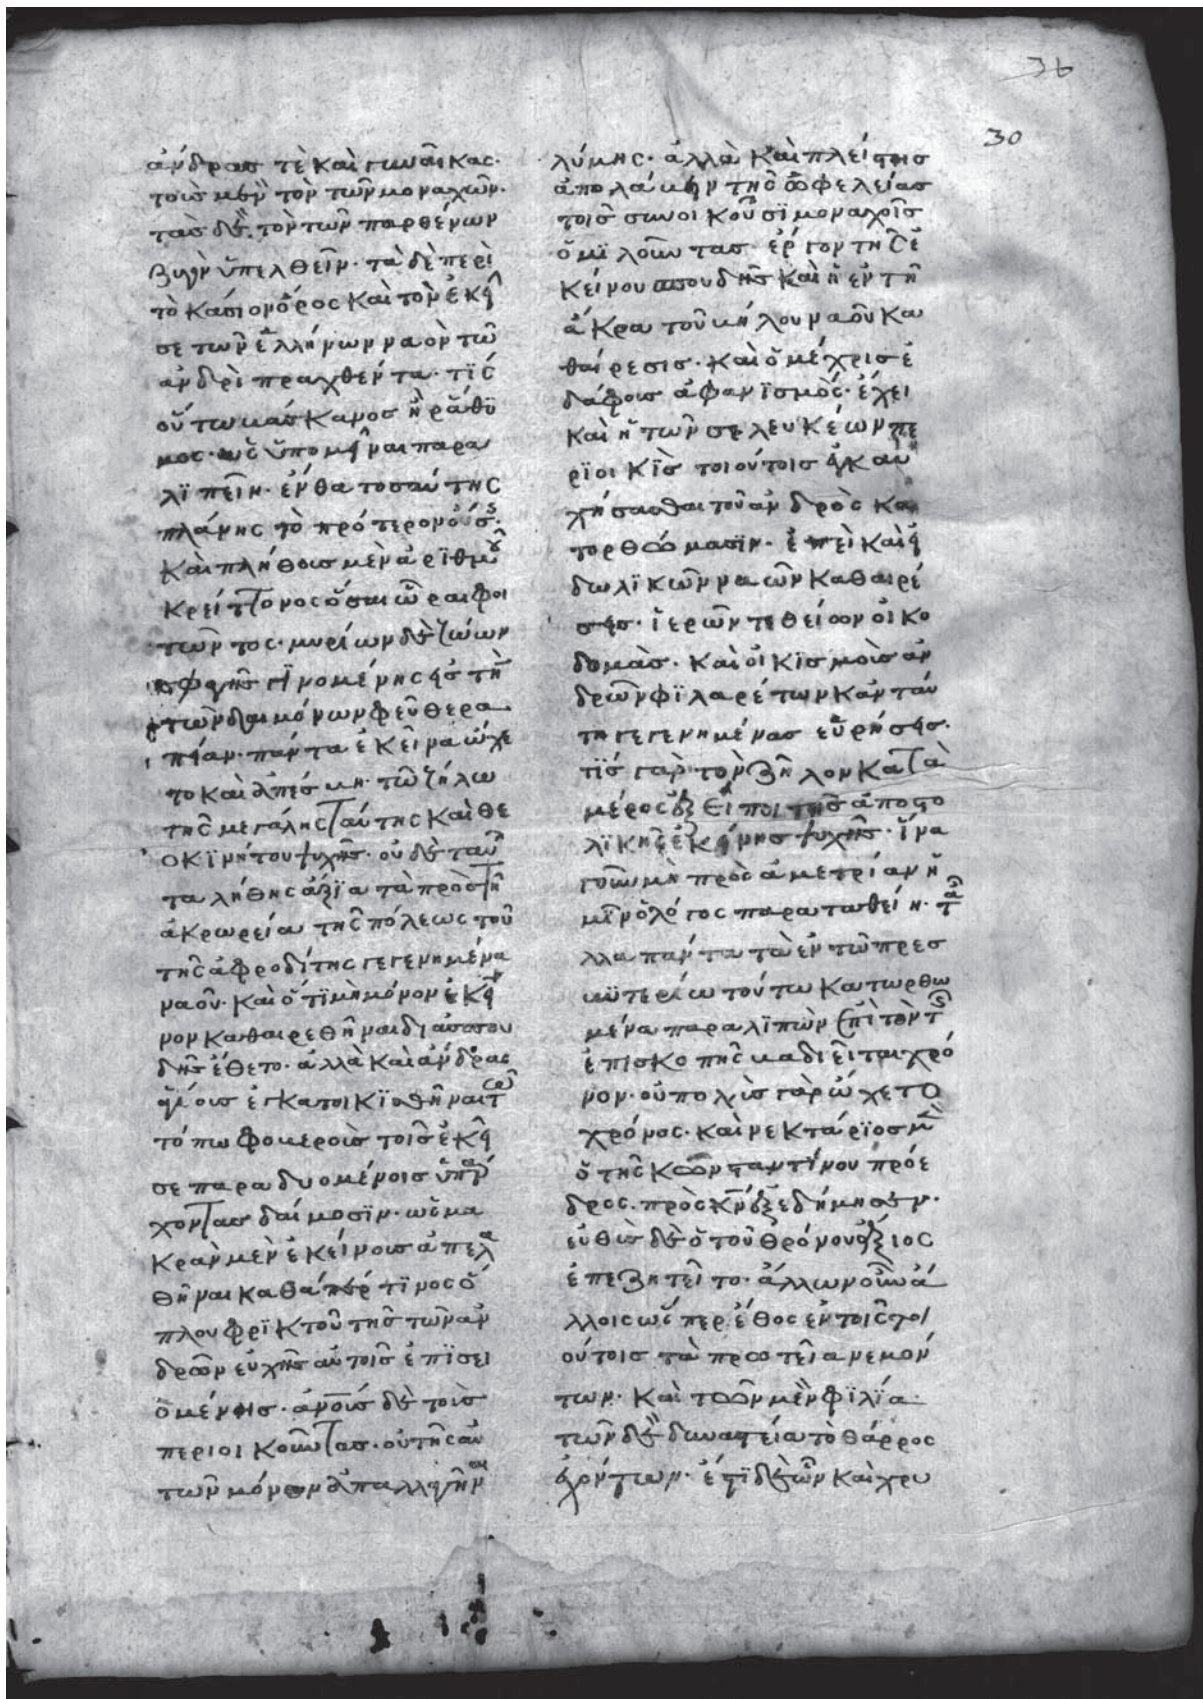 36
30
ἄνδρας τὲ καὶ γυναῖκας·
τοὺς μὲν τὸν τῶν μοναχῶν·
τὰς δὲ τὸν τῶν παρθένων
ζυγὸν ὑπελθεῖν· τὰ δὲ περὶ
τὸ κάσιον ὄρος καὶ τὸν ἐκεῖ
σε τῶν ἑλλήνων ναὸν τῶ
ἀνδρὶ πραχθέντα· τίς
οὕτω βάσκανος ἢ ῥάθυ
μος ὡς ὑπομεῖναι παρα
λϊπεῖν· ἔνθα τοσαύτης
πλάνης τὸ πρότερον οὔσς·
καὶ πλήθους μὲν ἀρϊθμοῦ
κρείττονος ὅσαι ὧραι φοι
τῶντος· μυρίων δὲ ζώων
σφαγῆς γϊνομένης εἰς τὴν
τῶν δαιμόνων φεῦ θερα
πείαν· πάντα ἐκεῖνα ὤχε
το καὶ ἀπέσβη· τῶ ζήλω
τῆς μεγάλης ταύτης καὶ θε
οκϊνήτου ψυχῆς· οὐδὲ ταῦ
τα λήθης ἄξϊα τὰ πρὸς τῆ
ἀκρωρεία τῆς πόλεως τοῦ
τῆς ἀφροδίτης γεγενημένα
ναοῦ· καὶ ὅτϊ μὴ μόνον ἐκεῖ
νον καθαιρεθῆναι διὰ σπου
δῆς ἔθετο· ἀλλὰ καὶ ἄνδρας
ἁγίους ἐγκατοικϊσθῆναι τῶ
τόπω φοβεροὺς τοῖς ἐκεῖ
σε παραδυομένοις ὑπάρ
χοντας δαίμοσϊν· ὡς μα
κρὰν μὲν ἐκείνους ἀπελα
θῆναι καθάπέρ τϊνος ὅ
πλου φρϊκτοῦ τῆς τῶν ἀν
δρῶν εὐχῆς αὐτοῖς ἐπϊσει
ομένης· ἀνοῖς δὲ τοὺς
περιοικοῦντας· οὐ τῆς αὐ
τῶν μόνον ἀπαλλαγῆναι
λύμης· ἀλλὰ καὶ πλείστης
ἀπολαύειν τῆς ὠφελείας
τοῖς συνοικοῦσϊ μοναχοῖς
ὁμϊλοῦντας· ἔργον τῆς ἐ
κείνου σπουδῆς καὶ ἡ ἐν τῆ
ἄκρα τοῦ βήλου ναοῦ κα
θαίρεσις· καὶ ὁ μέχρις ἐ
δάφους ἀφανϊσμός· ἔχει
καὶ ἡ τῶν σελευκέων πε
ρϊοικὶς τοιούτοις ἐγκαυ
χήσασθαι τοῦ ἀνδρὸς κα
τορθώμασϊν· ἐπεὶ καὶ εἰ
δωλϊκῶν ναῶν καθαιρέ
σεις· ἱερῶν τε θείων οἰκο
δομὰς· καὶ οἰκϊσμοὺς ἀν
δρῶν φϊλαρέτων κἀνταύ
τη γεγενημένας εὑρήσεις·
τϊς γὰρ τὸν ζῆλον κατὰ
μέρος ἐξείποι τῆς ἀποστο
λϊκῆς ἐκείνης ψυχῆς· ἵνα
γοῦν μὴ πρὸς ἀμετρίαν ἡ
μῖν ὁ λόγος παραταθείη· τἆ
λλα πάντα τὰ ἐν τῶ πρεσ
βϋτερίω τούτω κατωρθω
μένα παραλϊπὼν ἐπὶ τὸν τῆς
ἐπισκοπῆς βαδιεῖται χρό
νον· οὐ πολὺς γὰρ ὤχετο
χρόνος· καὶ νεκτάρϊος μὲν
ὁ τῆς κωνσταντίνου πρόε
δρος· πρὸς κν ἐξεδήμησεν·
εὐθὺς δὲ ὁ τοῦ θρόνου ἄξιος
ἐπεζητεῖτο· ἄλλων οὖν ἄ
λλοις ὥσπερ ἔθος ἐν τοῖς τοι
ούτοις τὰ πρωτεῖα νεμόν
των· καὶ τῶν μὲν φϊλϊα
τῶν δὲ δυναστεία τὸ θάρρος
ἐχόντων· ἔστϊ δὲ ὧν καὶ χρυ